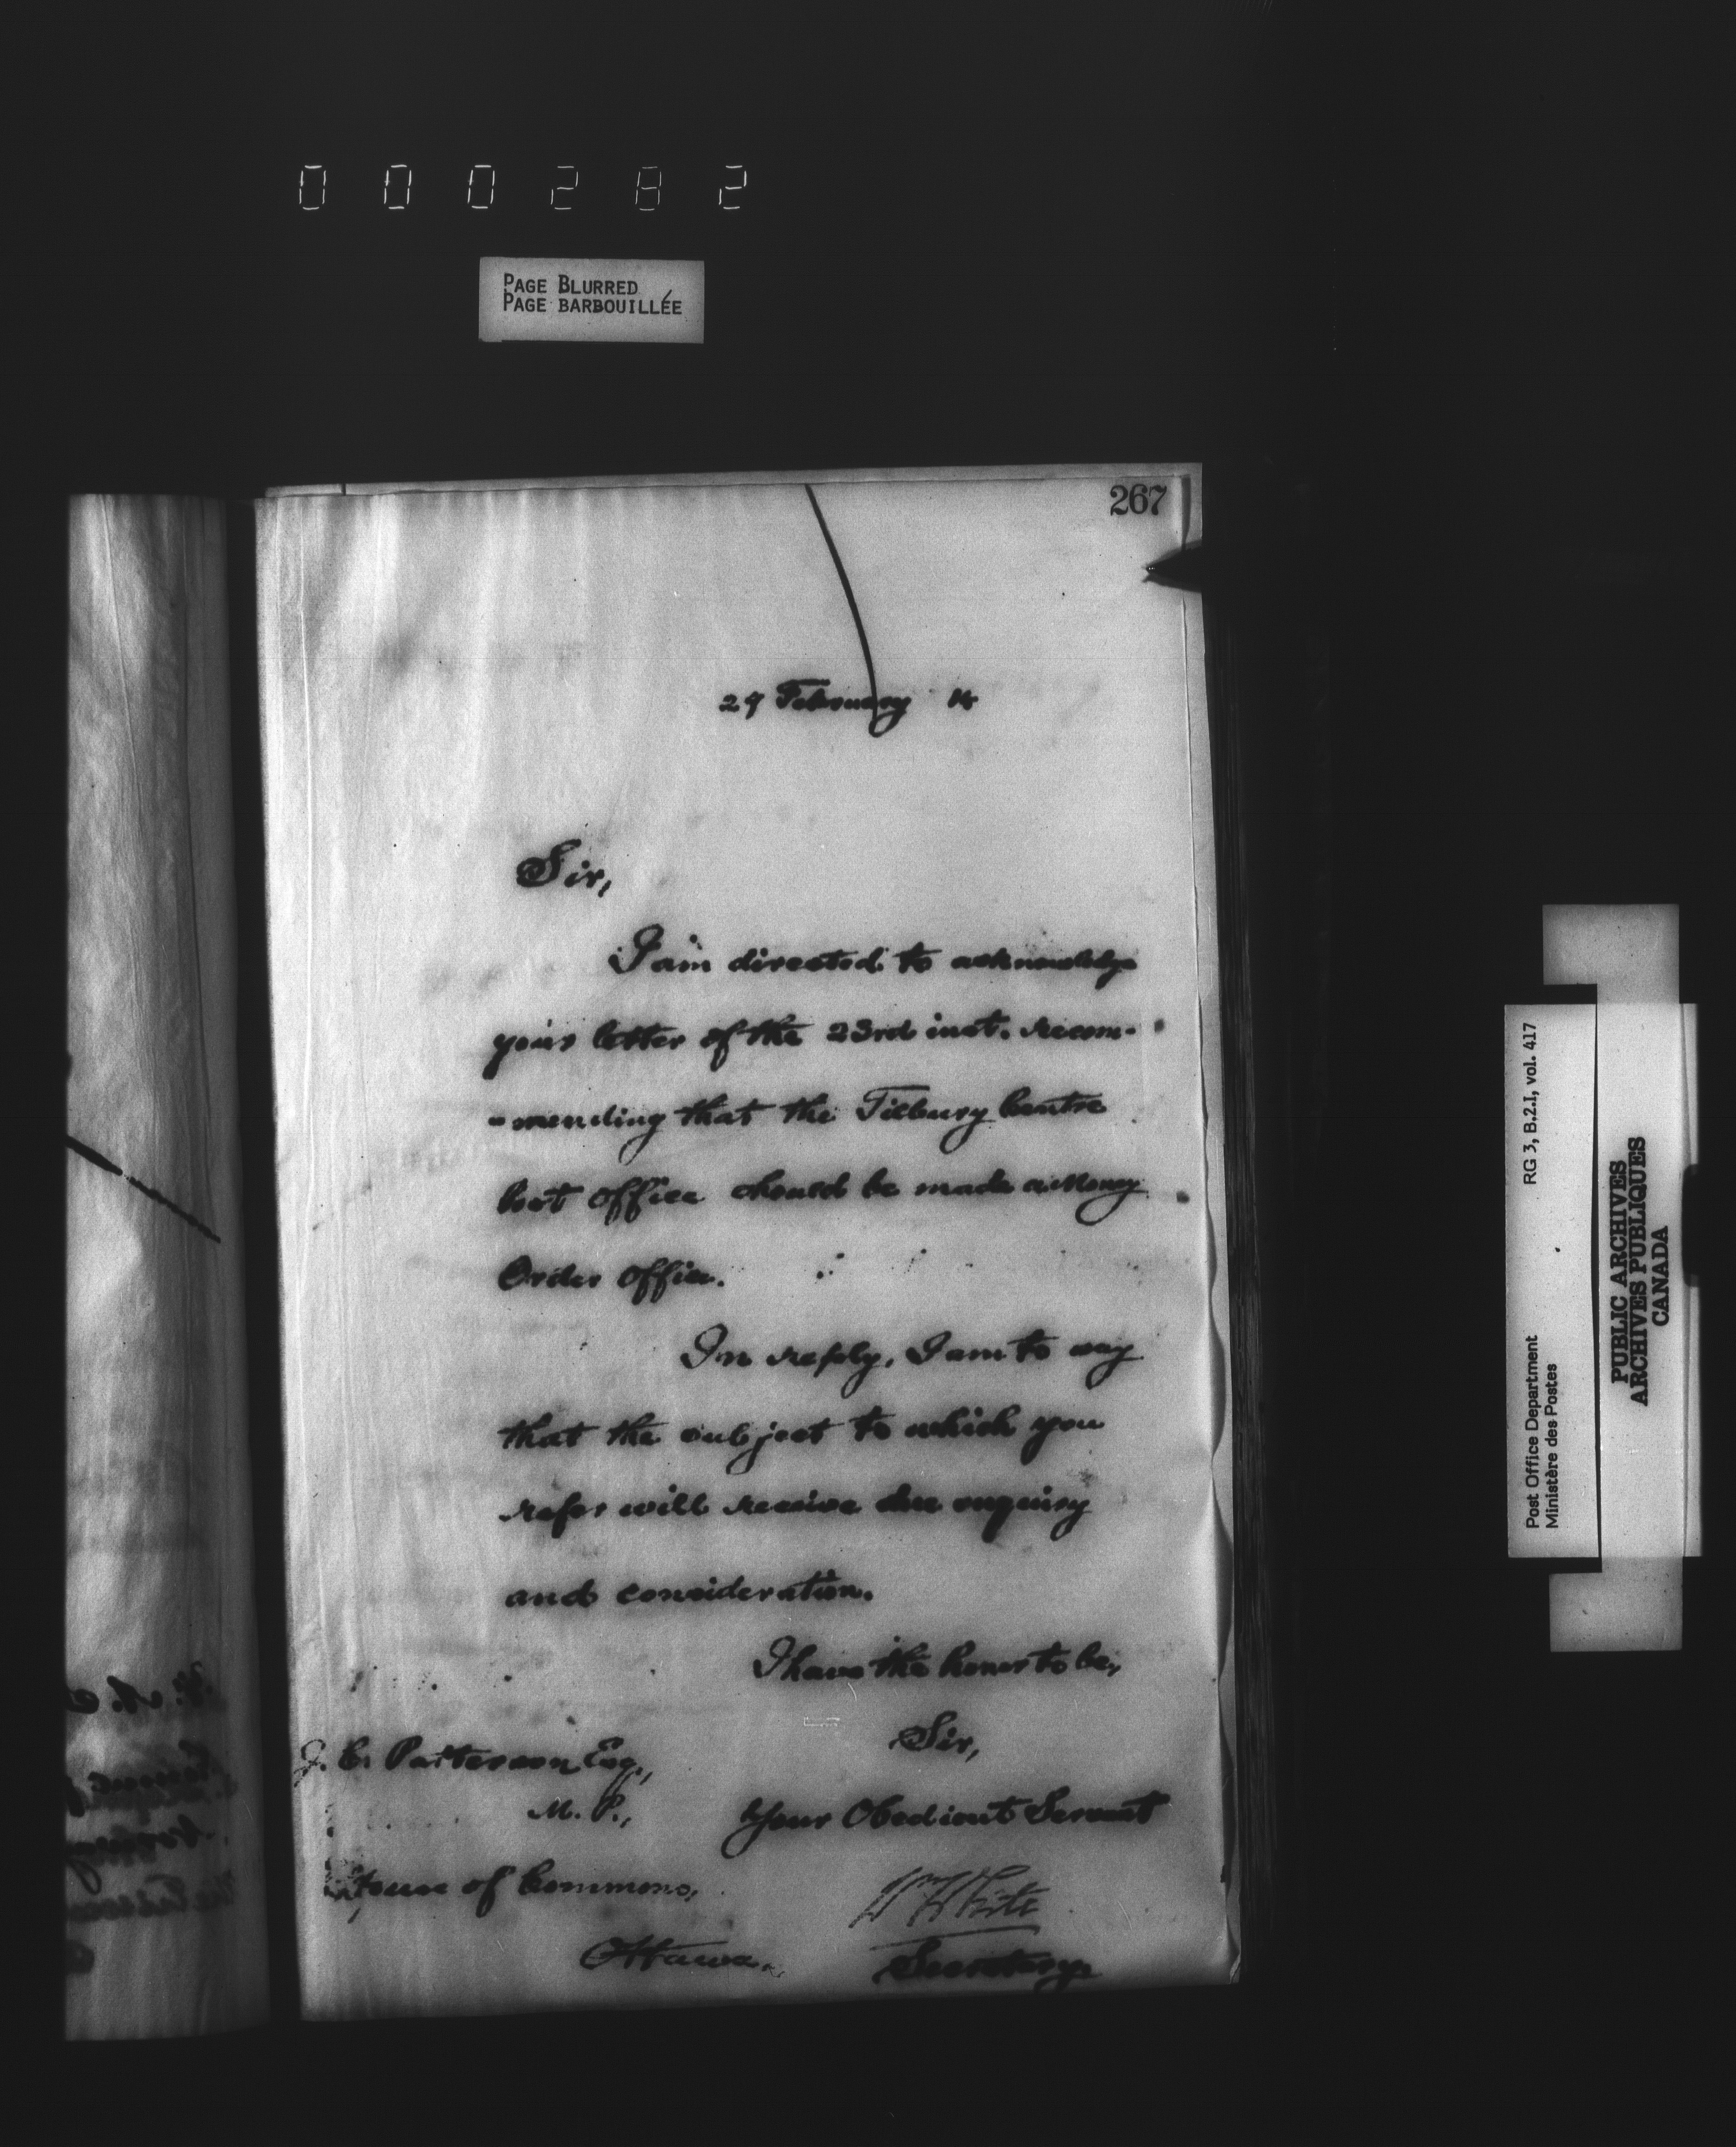 000282
PAGE BLURRED
PAGE BARBOUILLÉE
267
29 February
Sir,
I am directed to acknowledge
your letter of the 23rd inst. recom-
-mending that the Tilbury Centre
Post Office should be made a Money
Order Office.
In reply, I am to say
that the subject to which you
refer will receive due enquiry
and consideration.
I have the honor to be,
Sir,
Your Obedient Servant
W White
Secretary
J. C. Patterson Esq.,
M. P.,
House of Commons,
Ottawa.
Post Office Department RG 3, B.2.I, vol. 417
Ministère des Postes
PUBLIC ARCHIVES
ARCHIVES PUBLIQUES
CANADA